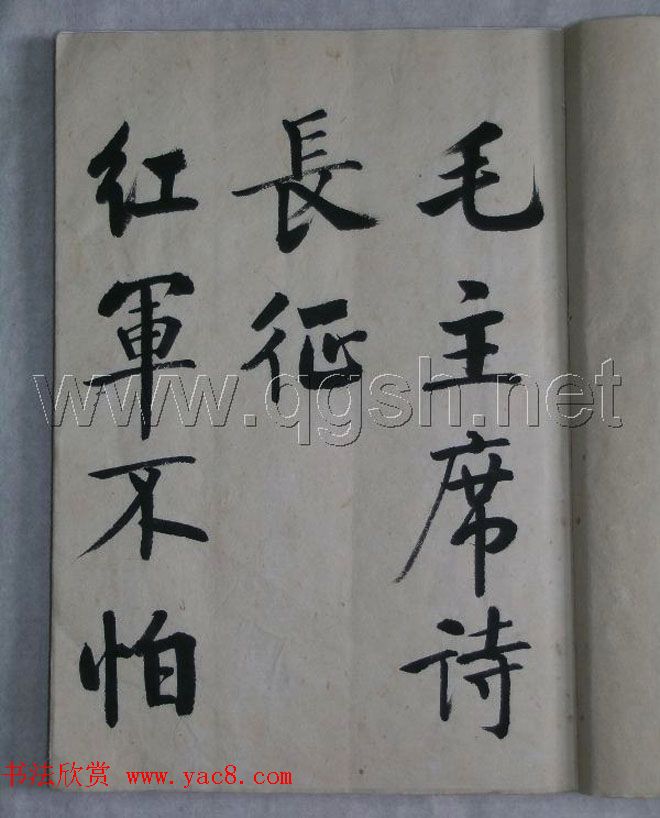 毛主席诗
長征
紅軍不怕
www.qgsh.net
书法欣赏 www.yac8.com